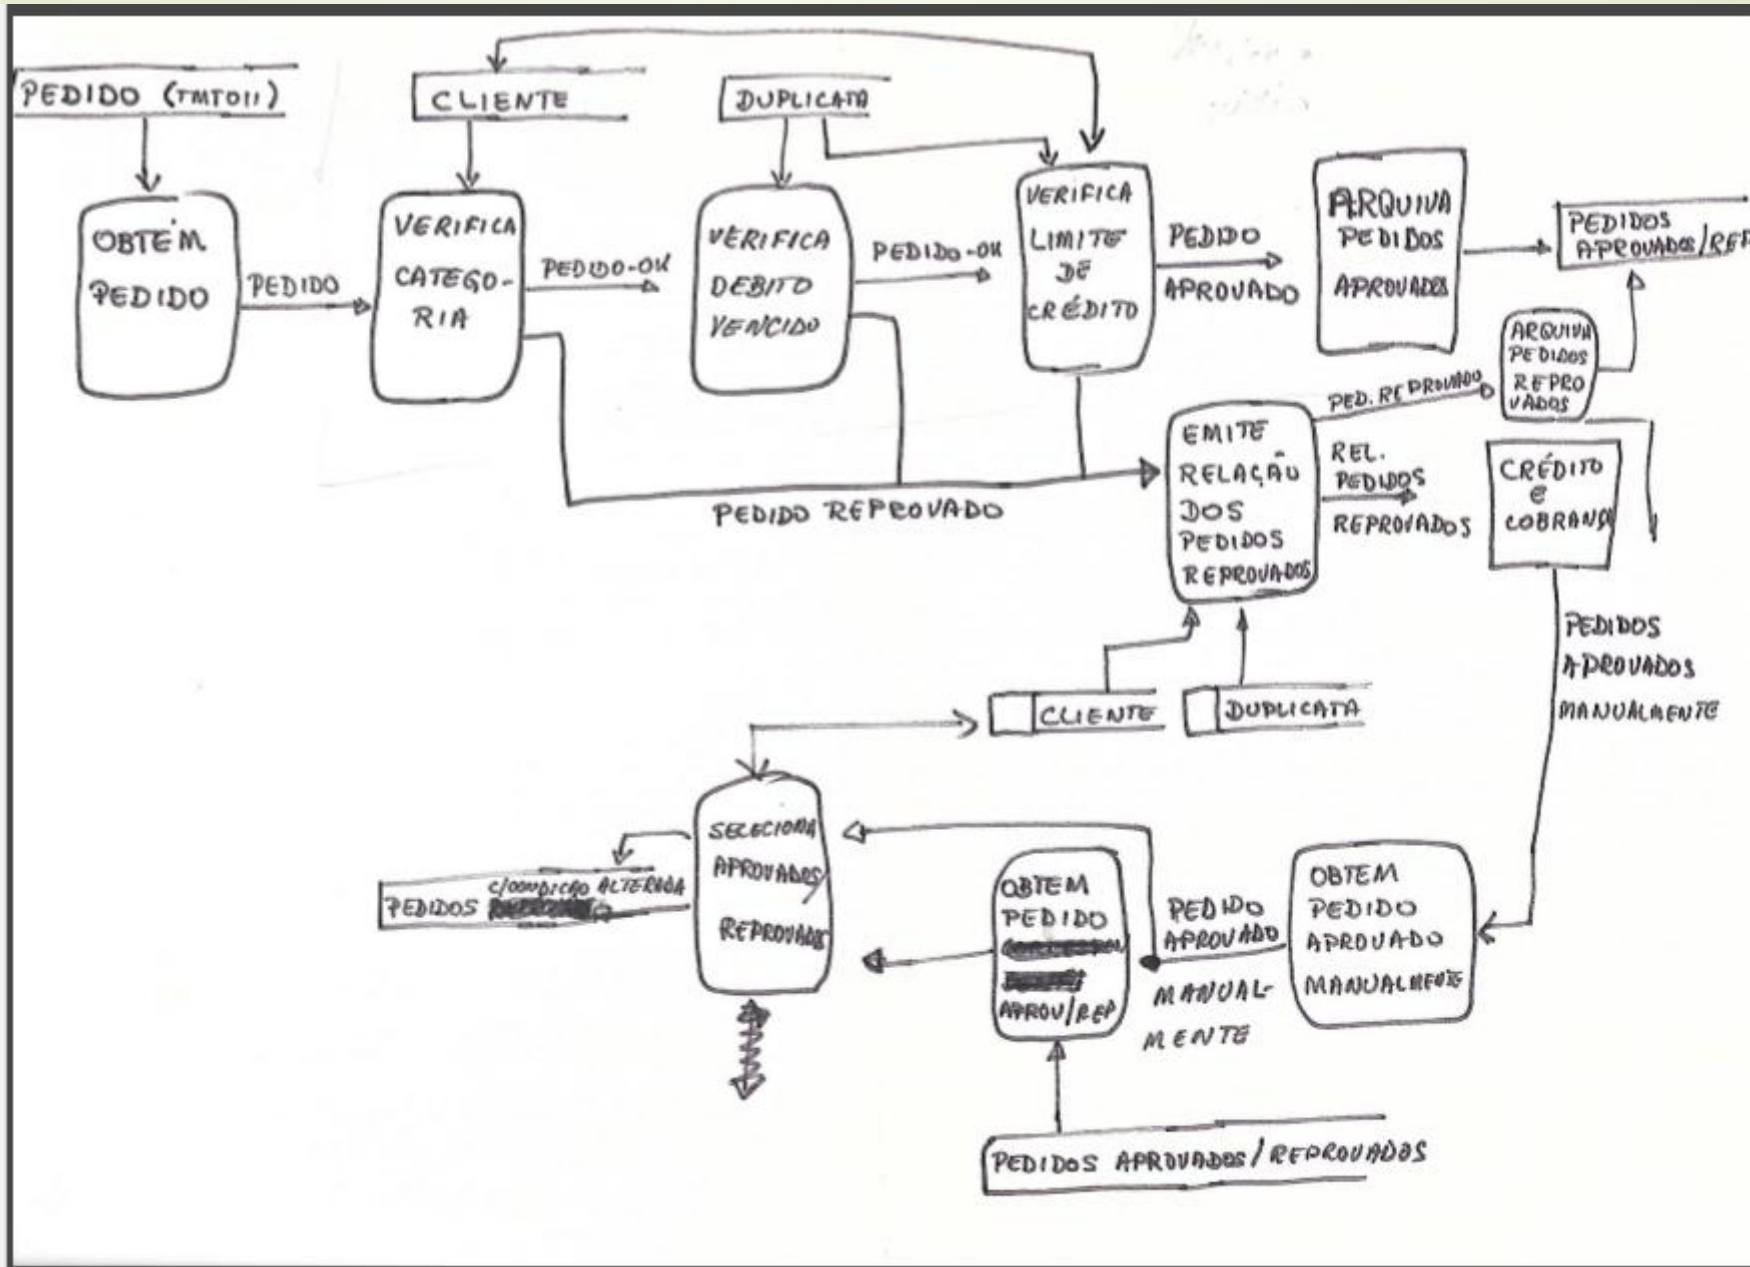 PEDIDO (TMTO11)
CLIENTE
DUPLICATA
OBTÉM
PEDIDO
PEDIDO
VERIFICA
CATEGO-
RIA
PEDIDO-OK
VERIFICA
DEBITO
VENCIDO
PEDIDO-OK
VERIFICA
LIMITE
DE
CRÉDITO
PEDIDO
APROVADO
ARQUIVA
PEDIDOS
APROVADOS
PEDIDOS
APROVADOS/REP
ARQUIVA
PEDIDOS
REPRO
VADOS
PED. REPROVADO
PEDIDO REPROVADO
EMITE
RELAÇÃO
DOS
PEDIDOS
REPROVADOS
REL.
PEDIDOS
REPROVADOS
CRÉDITO
E
COBRANÇA
PEDIDOS
APROVADOS
MANUALMENTE
CLIENTE
DUPLICATA
SELECIONA
APROVADOS/
REPROVADOS
C/CONDIÇÃO ALTERADA
PEDIDOS
OBTEM
PEDIDO
APROV/REP
PEDIDO
APROVADO
MANUAL-
MENTE
OBTEM
PEDIDO
APROVADO
MANUALMENTE
PEDIDOS APROVADOS/REPROVADOS